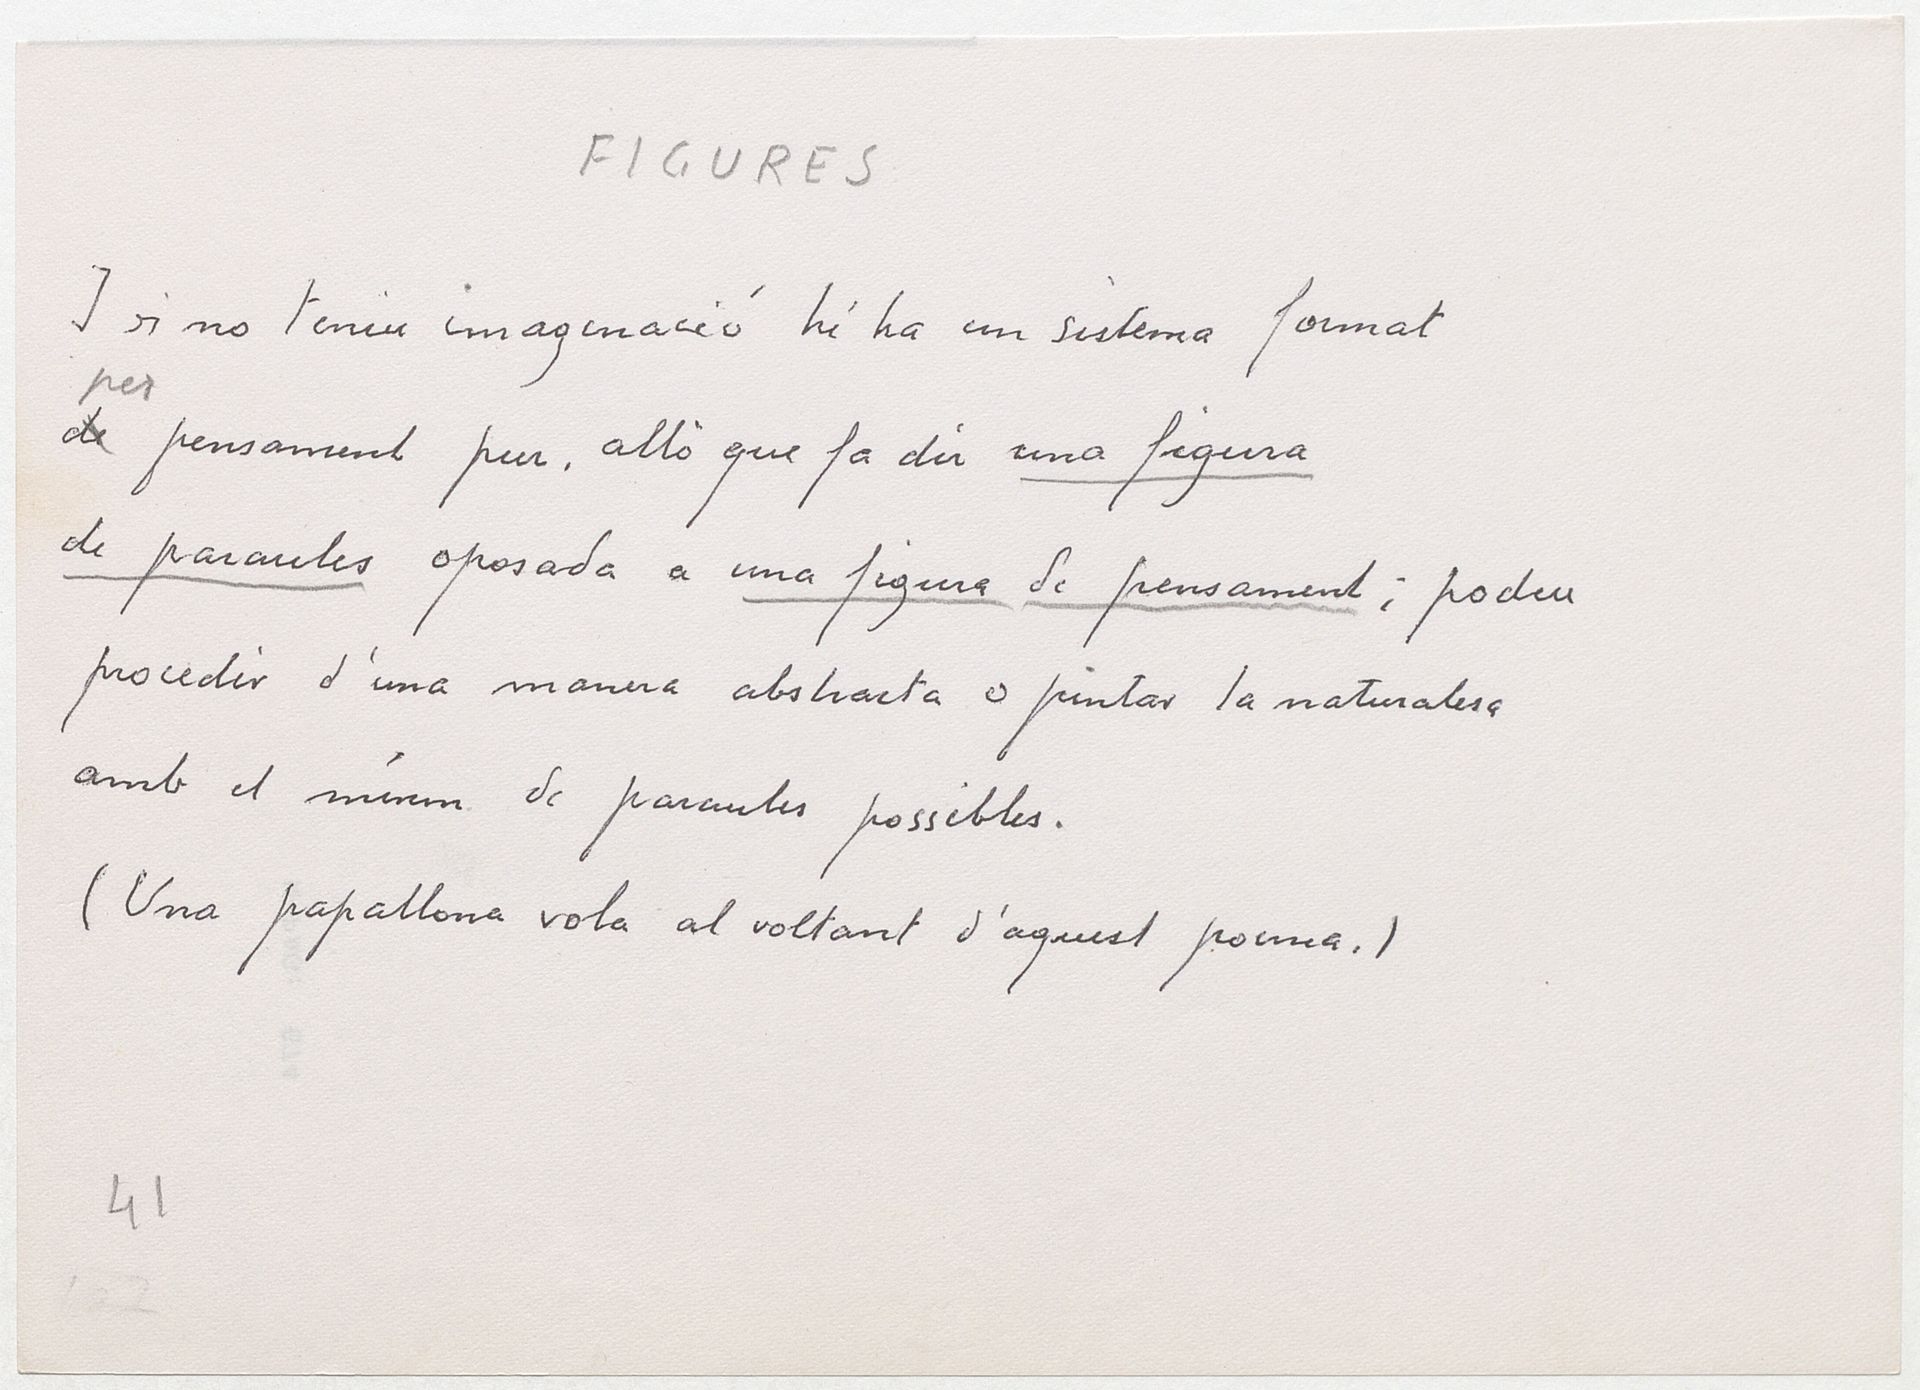 FIGURES
I si no teniu imaginació hi ha un sistema format
per
de pensament pur, allò que fa dir una figura
de paraules oposada a una figura de pensament; podeu
procedir d'una manera abstracta o pintar la naturalesa
amb el mínim de paraules possibles.
(Una papallona vola al voltant d'aquest poema.)
41